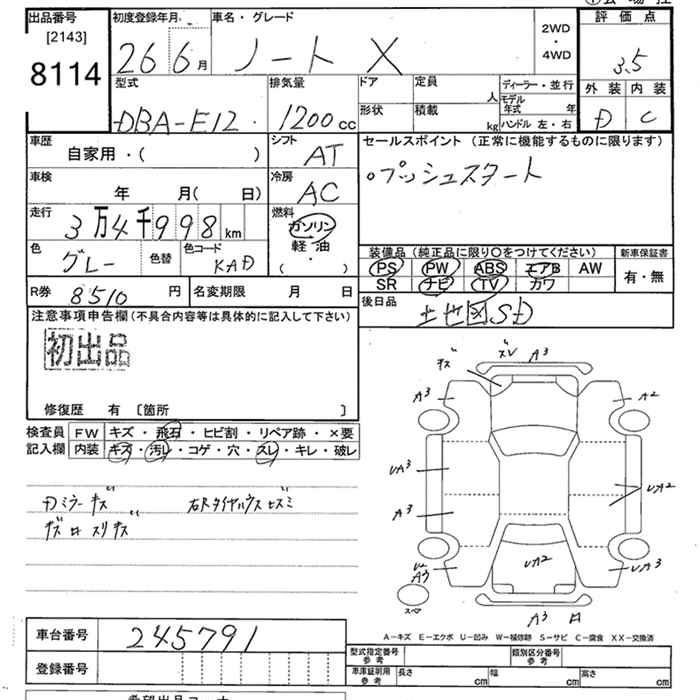 出品番号
[2143]
8114
初度登録年月
26 6月
車名・グレード
ノート X
2WD
・
4WD
評価点
3.5
外装 内装
D C
型式
DBA-E12
排気量
1200cc
ドア
定員
人
形状
積載
kg
ディーラー・並行
モデル年式 年
ハンドル 左・右
車歴
自家用・( )
シフト
AT
セールスポイント (正常に機能するものに限ります)
○プッシュスタート
車検
年 月( 日)
冷房
AC
走行
3万4千998 km
燃料
ガソリン
軽油
( ・ )
色
グレー
色替
色コード
KAD
装備品 (純正品に限り○をつけてください)
PS PW ABS エアB AW
SR ナビ TV カワ
新車保証書
有・無
R券 8510円
名変期限 月 日
後日品
注意事項申告欄(不具合内容等は具体的に記入して下さい)
初出品
修復歴 有 〔箇所 〕
検査員
記入欄
FW キズ・飛石・ヒビ割・リペア跡・×要
内装 キズ・汚レ・コゲ・穴・スレ・キレ・破レ
Dミラーキズ
キズロ スリキズ
キズ
ズレ
A3
A3
A2
UA3
A3
UA2
UA2
A3
UA3
A3
スペア
A-キズ E-エクボ U-凹み W-補修跡 S-サビ C-腐食 XX-交換済
車台番号 245791
登録番号
型式指定番号
参考
類別区分番号
参考
車庫証明用
参考
長さ cm
幅 cm
高さ cm